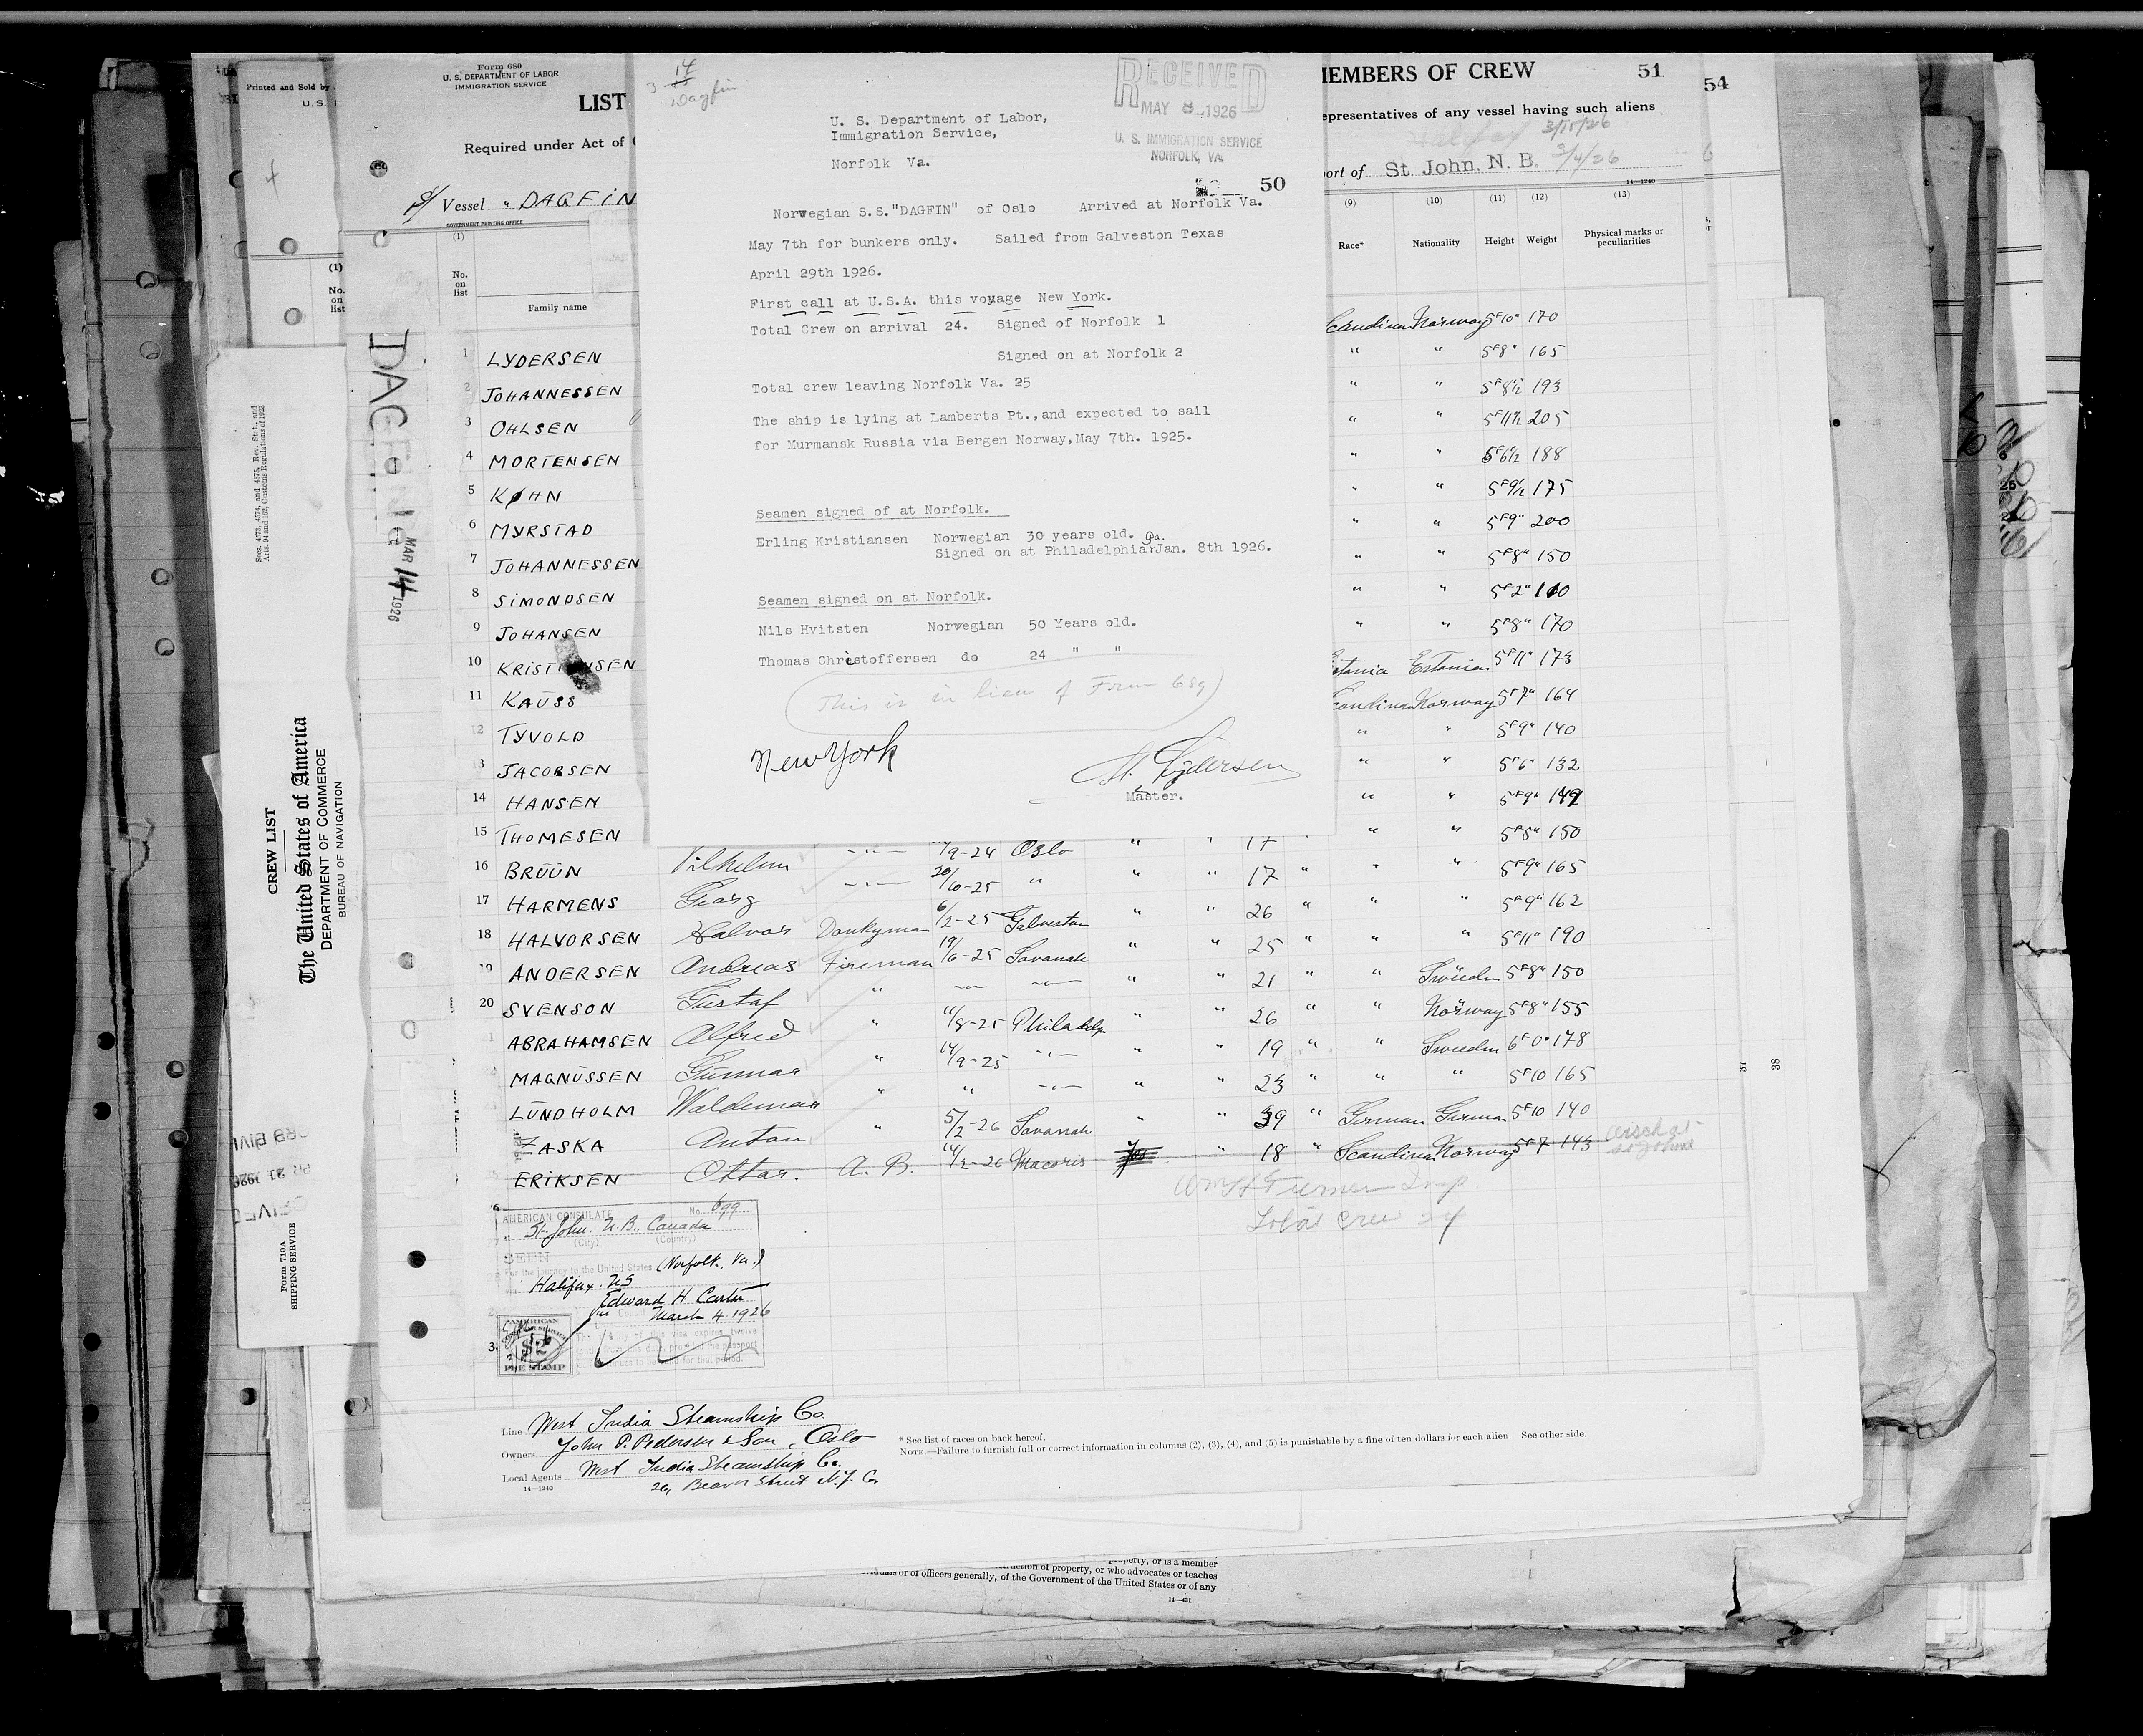 Form 680
U. S. DEPARTMENT OF LABOR
IMMIGRATION SERVICE
LIST
Required under Act of
Vessel " DAGFIN
GOVERNMENT PRINTING OFFICE
(1)
No. on list
Family name
Printed and Sold by
U. S.
(1)
No. on list
14
3
Dagfin
RECEIVED
MAY 8 1926
U. S. IMMIGRATION SERVICE
NORFOLK, VA.
U. S. Department of Labor,
Immigration Service,
Norfolk Va.
50
Norwegian S.S."DAGFIN" of Oslo Arrived at Norfolk Va.
May 7th for bunkers only. Sailed from Galveston Texas
April 29th 1926.
First call at U.S.A. this voyage New York.
Total Crew on arrival 24. Signed of Norfolk 1
Signed on at Norfolk 2
Total crew leaving Norfolk Va. 25
The ship is lying at Lamberts Pt.,and expected to sail
for Murmansk Russia via Bergen Norway,May 7th. 1925.
Seamen signed of at Norfolk.
Erling Kristiansen Norwegian 30 years old.
Signed on at Philadelphia Pa. Jan. 8th 1926.
Seamen signed on at Norfolk.
Nils Hvitsten Norwegian 50 Years old.
Thomas Christoffersen do 24 " "
This is in lieu of Form 689
New York
H. Lydersen
Master.
MEMBERS OF CREW 51
54
epresentatives of any vessel having such aliens
Halifax 3/15/26
port of St. John, N. B. 3/4/26
14—1240
(9) (10) (11) (12) (13)
Race* Nationality Height Weight Physical marks or peculiarities
Scandina Norway 5F10" 170
1 LYDERSEN " " 5F8" 165
2 JOHANNESSEN " " 5F8½ 193
3 OHLSEN " " 5F11½ 205
4 MORTENSEN " " 5F6½ 188
5 KØHN " " 5F9½ 175
6 MYRSTAD " " 5F9" 200
7 JOHANNESSEN " " 5F8" 150
8 SIMONDSEN " " 5F2" 110
9 JOHANSEN " " 5F8" 170
10 KRISTIANSEN Estonia Estonian 5F11" 173
11 KAUSS Scandina Norway 5F7" 164
12 TYVOLD " " 5F9" 140
3 JACOBSEN " " 5F6" 132
14 HANSEN " " 5F9" 149
15 THOMESEN 17 " " 5F5" 150
16 BRUUN Vilhelm -"- 1/9-24 Oslo " " 17 " " " 5F9" 165
17 HARMENS Georg -"- 20/10-25 " " " 26 " " " 5F9" 162
18 HALVORSEN Halvor Donkyman 6/2-25 Galveston " " 25 " " " 5F11" 190
19 ANDERSEN Andreas Fireman 19/6-25 Savanah " " 21 " " Sweden 5F8" 150
20 SVENSON Gustaf " -"- -"- " " 26 " " Norway 5F8" 155
1 ABRAHAMSEN Alfred " 11/8-25 Philadelp " " 19 " " Sweeden 6F0" 178
MAGNUSSEN Gunnar " 14/9-25 -"- " " 23 " " " 5F10 165
LUNDHOLM Waldemar " " -"- " " 39 " German German 5F10 140
ZASKA Anton " 5/2-26 Savanah " " 18 " Scandina Norway 5F7 143
ERIKSEN Ottar. A. B. Macoris Yes
Total crew 24
AMERICAN CONSULATE No. 699
St. John. N. B., Canada
(City) (Country)
SEEN
For the journey to the United States (Norfolk, Va.)
Halifax, NS
Edward H. Carter
March 4 1926
AMERICAN
$2
FEE STAMP
Line West India Steamship Co.
Owners John P. Pedersen & Son, Oslo
Local Agents West India Steamship Co.
14—1240
26, Beaver Street N.Y. C.
* See list of races on back hereof.
NOTE.—Failure to furnish full or correct information in columns (2), (3), (4), and (5) is punishable by a fine of ten dollars for each alien. See other side.
DAGFin
MAR 14 1926
Secs. 4573, 4574, and 4575, Rev. Stat., and
Arts. 94 and 162, Customs Regulations of 1923
CREW LIST
The United States of America
DEPARTMENT OF COMMERCE
BUREAU OF NAVIGATION
Form 719A
SHIPPING SERVICE
37
38
property, or is a member
ruction of property, or who advocates or teaches
or of officers generally, of the Government of the United States or of any
14—431